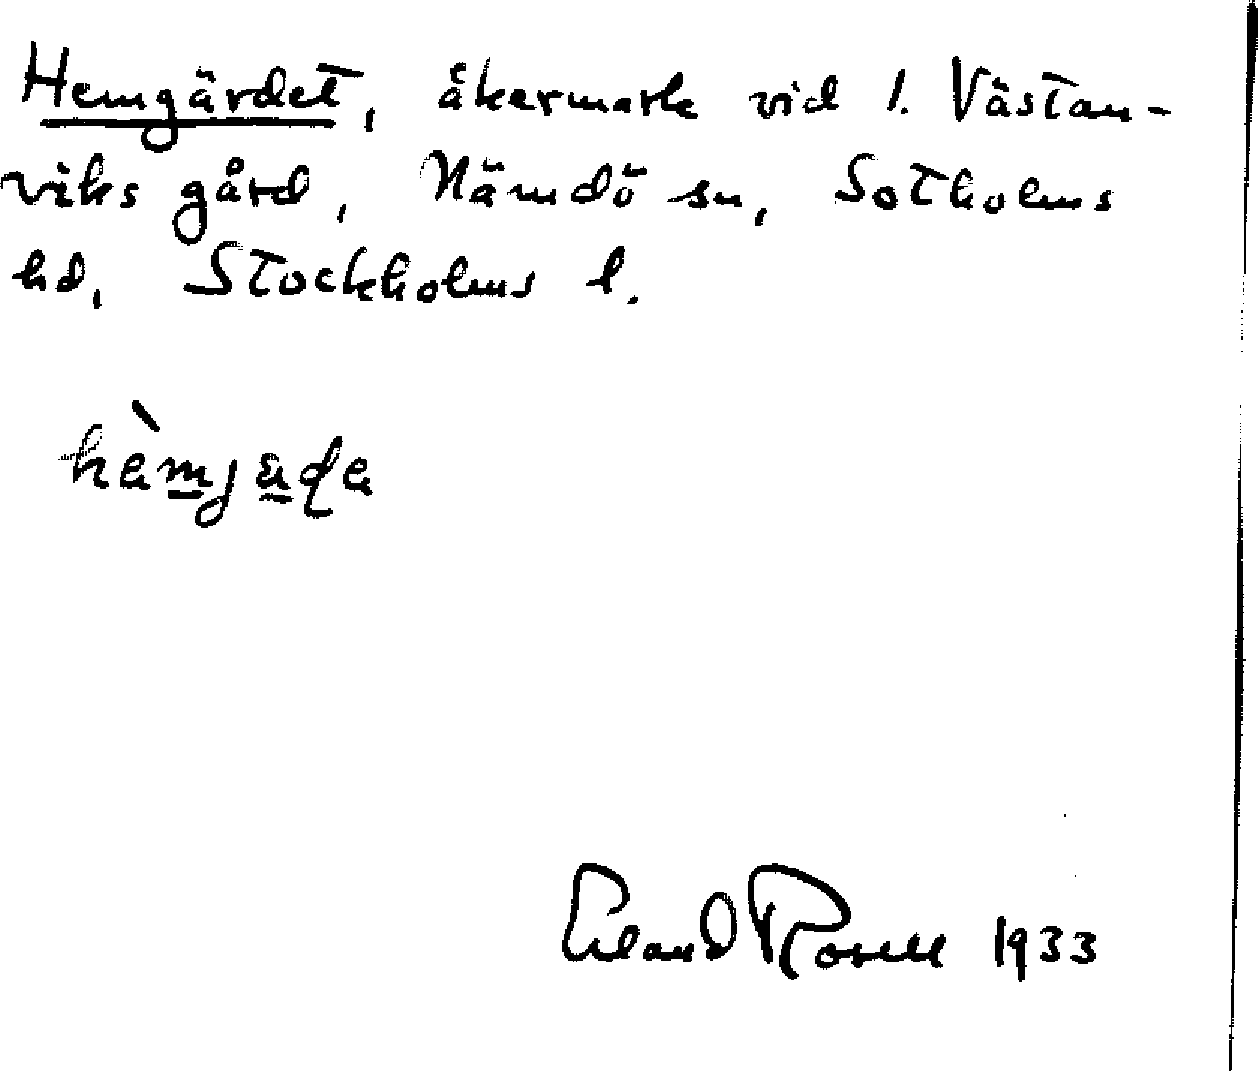 Hemgärdet, åkermark vid 1. Västan-
viks gård, Nämdö sn, Sotholms
hd, Stockholms l.
Erland Rosell 1933